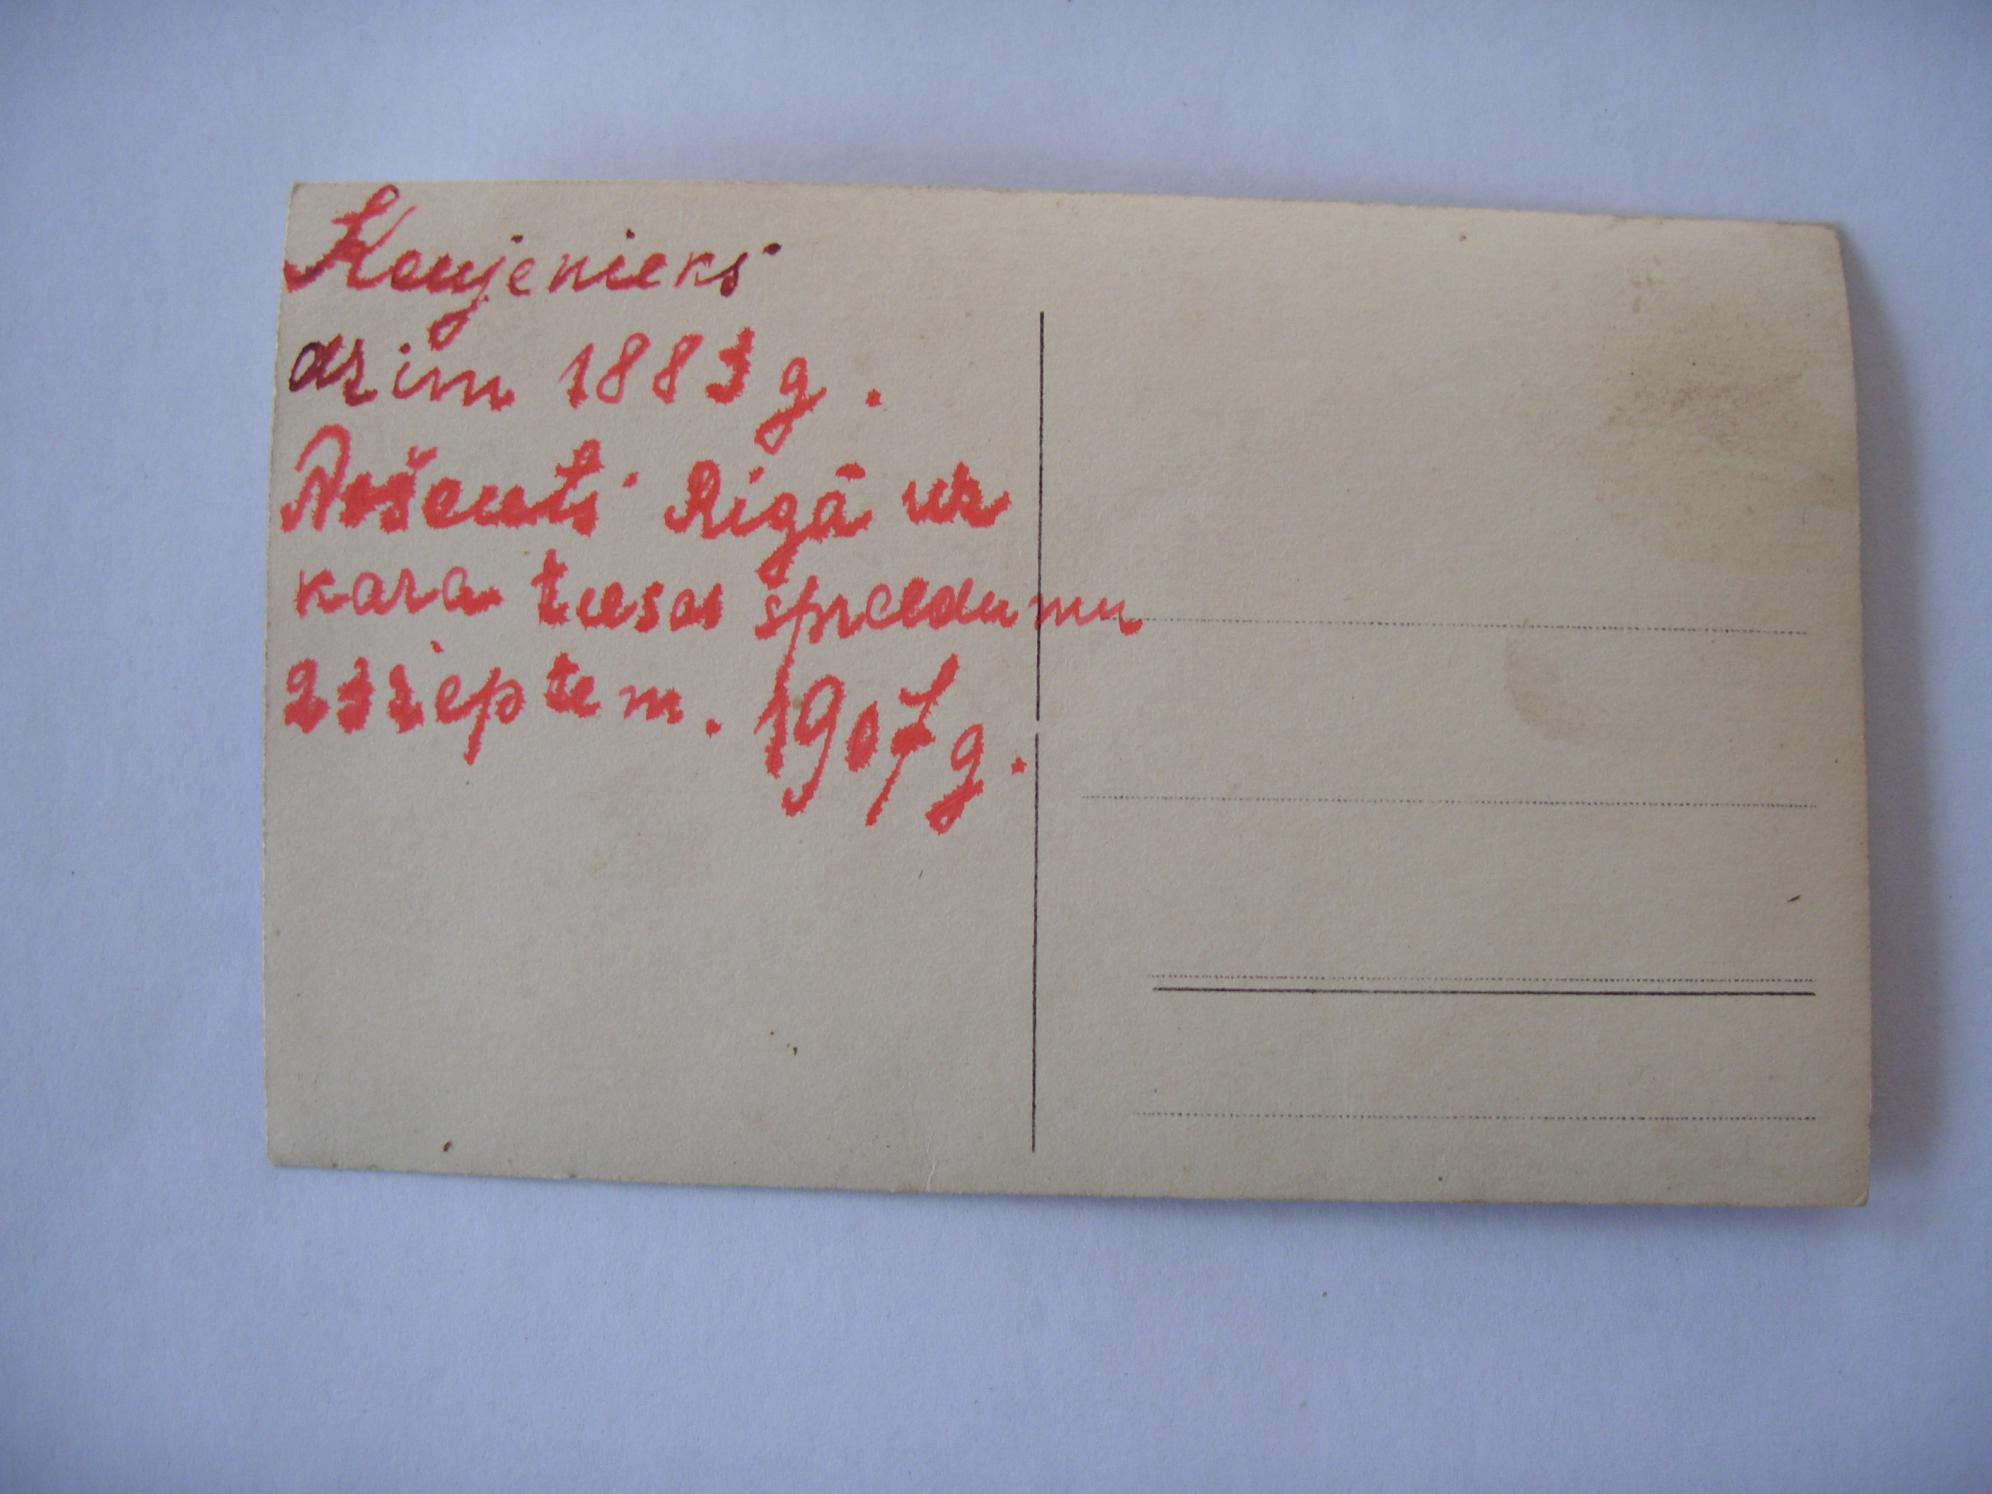 Kaujenieks
dzim 1883 g.
Nošauts Rīgā uz
kara tiesas spreedumu
23 septem. 1907 g.